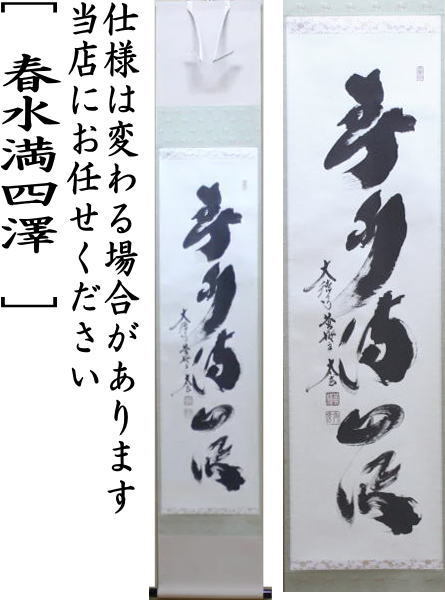 仕様は変わる場合があります
当店にお任せください
[ 春水満四澤 ]
春水満四澤
春水満四澤